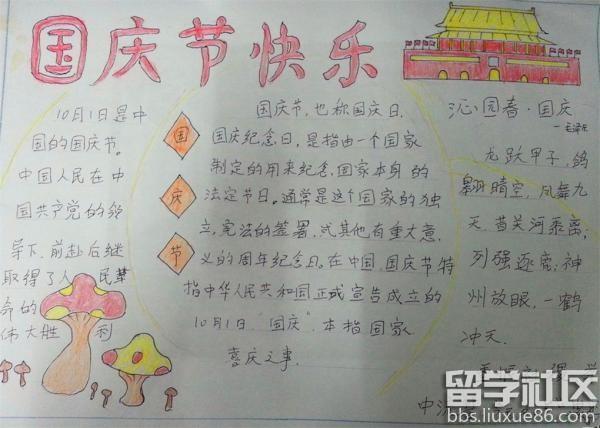 国庆节快乐
10月1日是中
国的国庆节。
中国人民在中
国共产党的领
导下,前赴后继
取得了人民革
命的
伟大胜利
国
庆
节
国庆节,也称国庆日、
国庆纪念日,是指由一个国家
制定的用来纪念国家本身的
法定节日。通常是这个国家的独
立、宪法的签署、或其他有重大意
义的周年纪念日。在中国,国庆节特
指中华人民共和国正成宣告成立的
10月1日 "国庆" 本指国家
喜庆之事.
沁园春·国庆
—毛泽东
龙跃甲子,鸽
翱晴空,凤舞九
天,昔关河乖离,
列强逐鹿;神
州放眼,一鹤
冲天.
留学社区
bbs.liuxue86.com